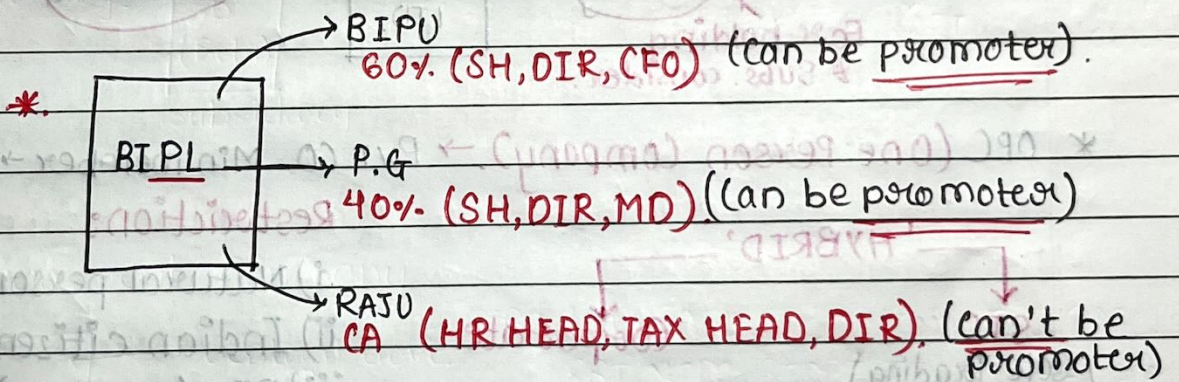 BIPU
60%. (SH, DIR, CFO) (can be promoter).
*.
BIPL
P.G
40%. (SH, DIR, MD) (Can be promoter)
RAJU
CA (HR HEAD, TAX HEAD, DIR). (can't be
promoter)